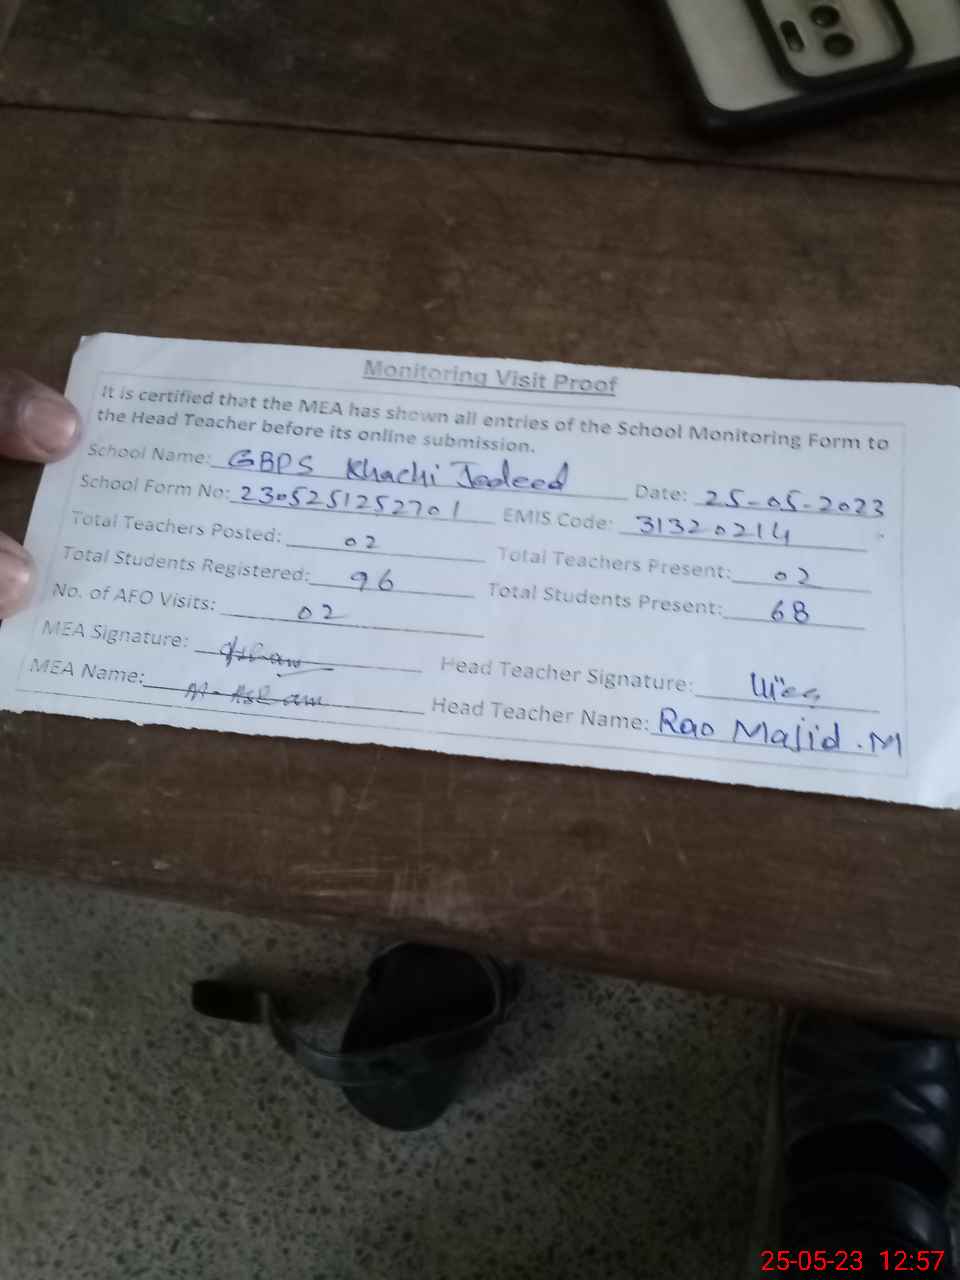 Monitoring Visit Proof
It is certified that the MEA has shown all entries of the School Monitoring Form to
the Head Teacher before its online submission.
School Name: GBPS Khachi Jadeed Date: 25-05-2023
School Form No: 2305251252701 EMIS Code: 31320214
Total Teachers Posted: 02 Total Teachers Present: 02
Total Students Registered: 96 Total Students Present: 68
No. of AFO Visits: 02
MEA Signature: Head Teacher Signature:
MEA Name: Head Teacher Name: Rao Majid .M
25-05-23 12:57